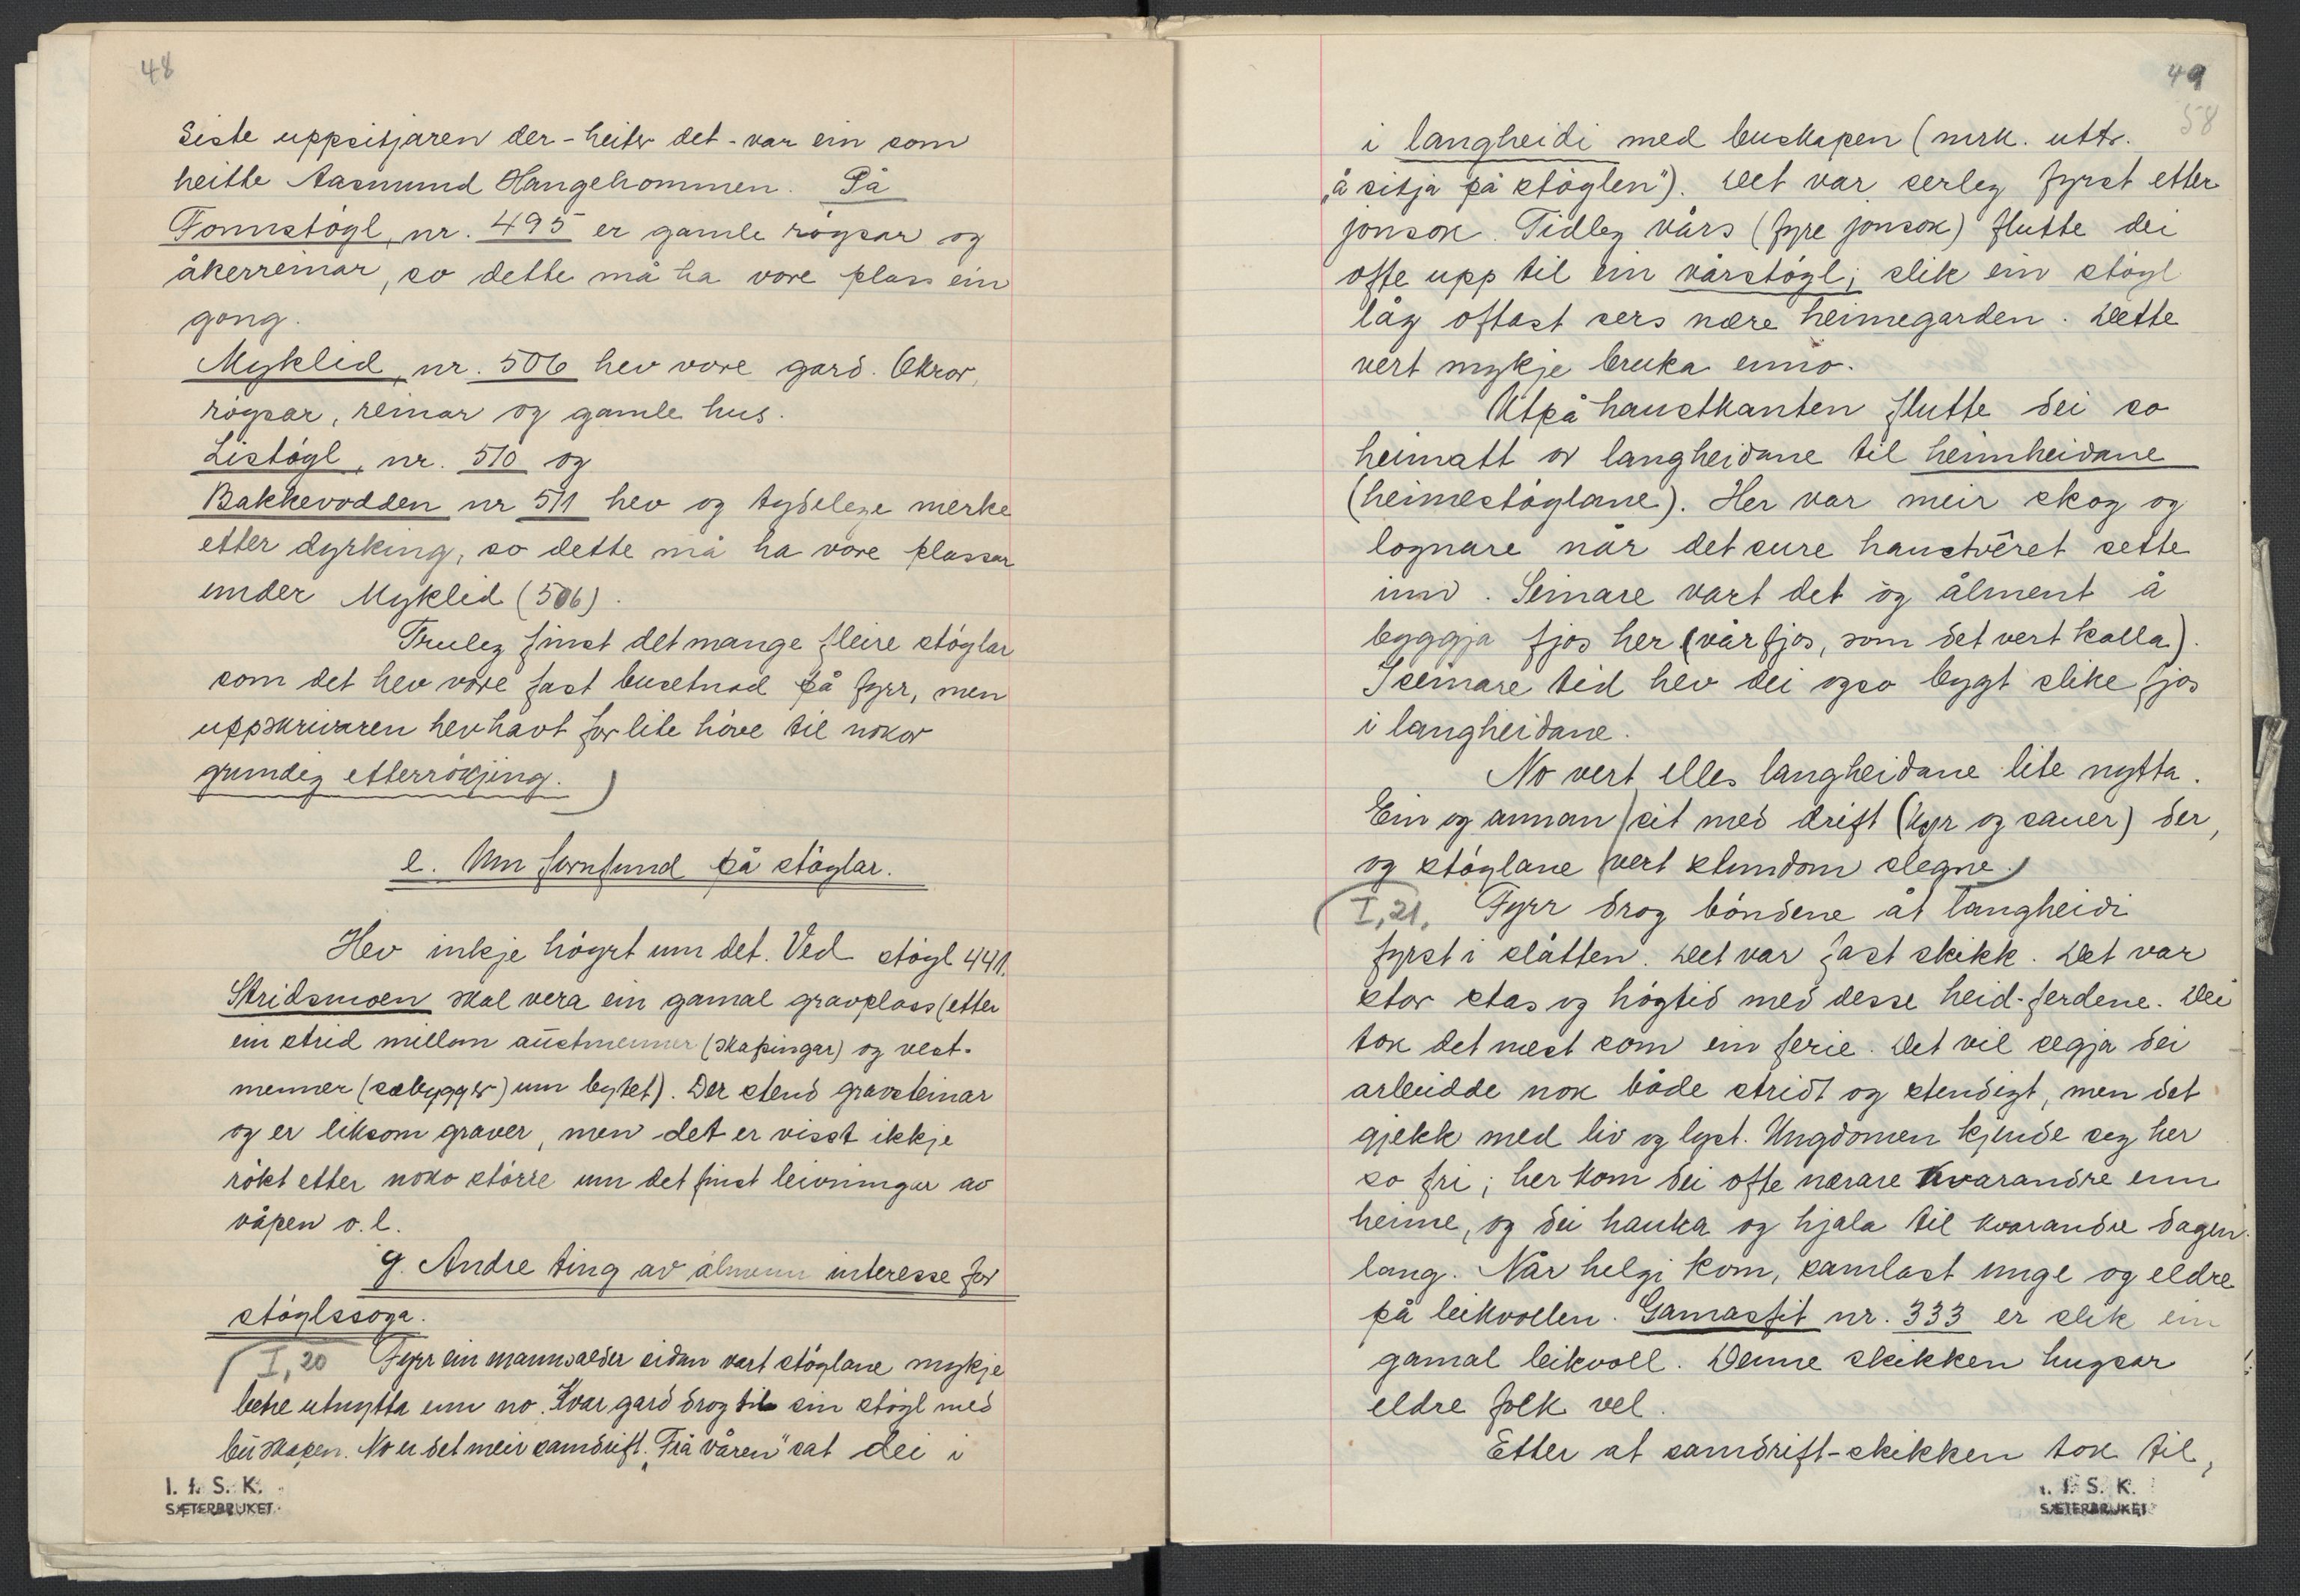 48
Siste uppsitjaren der - heiter det - var ein som
heitte Aasmund Hangehommen. På
Fonnstøgl, nr. 495 er gamle røysar og
åkerreinar, so dette må ha vore plass ein
gong.
Myklid, nr. 506 hev vore gard. Åkrar,
røysar, reinar og gamle hus.
Listøgl, nr. 510 og
Bakkevodden nr 511 hev og tydelege merke
etter dyrking, so dette må ha vore plassar
under Myklid (506).
Truleg finst det mange fleire støglar
som det hev vore fast busetnad på fyrr, men
uppskrivaren hev havt for lite høve til nokor
grundig etterrøkjing.)
e. Um fornfund på støglar.
Hev inkje høyrt um det. Ved støgl 441.
Stridsmoen skal vera ein gamal gravplass (etter
ein strid millom austmenner (skapingar) og vest-
menner (sæbygger) um bytet). Der stend gravsteinar
og er liksom graver, men det er visst ikkje
røkt etter noko større um det finst leivningar av
våpen o.l.
g. Andre ting av ålmenn interesse for
støglssoga.
(I, 20 Fyrr ein mannsalder sidan vart støglane mykje
betre utnytta enn no. Kvar gard drog til sin støgl med
buskapen. No er det meir samdrift. "Frå våren" sat dei i
I. f. S. K.
SÆTERBRUKET
49
58
i langheidi med buskapen (mrk. uttr.
„å sitja på støglen"). Det var serleg fyrst etter
jonsok. Tidleg vårs (fyre jonsok) flutte dei
ofte upp til ein vårstøgl; slik ein støgl
låg oftast sers nære heimegarden. Dette
vert mykje bruka enno.
Utpå haustkanten flutte dei so
heimatt or langheidane til heimheidane
(heimestøglane). Her var meir skog og
lognare når det sure haustvêret sette
inn. Seinare vart det og ålment å
byggja fjos her (vårfjos, som det vert kalla).
I seinare tid hev dei ogso bygt slike fjos
i langheidane.
No vert elles langheidane lite nytta.
Ein og annan sit med drift (kyr og sauer) der,
og støglane vert stundom slegne.)
(I, 21. Fyrr drog bøndene åt langheidi
fyrst i slåtten. Det var fast skikk. Det var
stor stas og høgtid med desse heid-ferdene. Dei
tok det mest som ein ferie. Det vil segja dei
arbeidde nok både stridt og stendigt, men det
gjekk med liv og lyst. Ungdomen kjende seg her
so fri; her kom dei ofte nærare kvarandre enn
heime, og dei hauka og hjala til kvarandre dagen
lang. Når helgi kom, samlast unge og eldre
på leikvollen. Gamasfit nr. 333 er slik ein
gamal leikvoll. Denne skikken hugsar
eldre folk vel.
Etter at samdrift-skikken tok til,
I. f. S. K.
SÆTERBRUKET